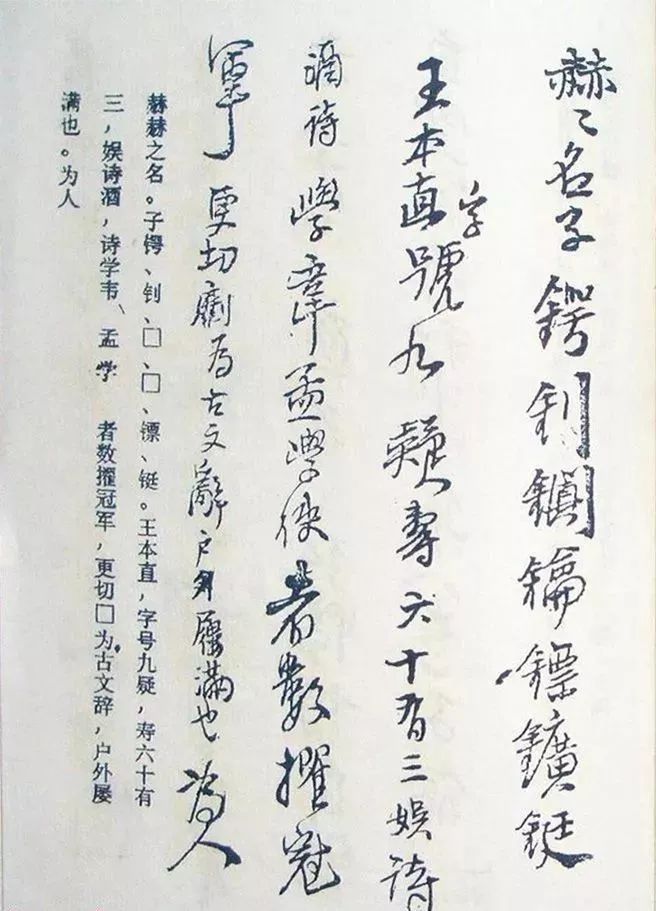 赫〻名子鍔釗鏢鑛鋌
王本直字號九疑壽六十有三娱詩
酒詩學韋孟學徒者數擢冠
軍更切劘為古文辭户外屨滿也為人
赫赫之名。子锷、钊、□、□、镖、铤。王本直，字号九疑，寿六十有
三，娱诗酒，诗学韦、孟学 者数擢冠军，更切□为古文辞，户外屡
满也。为人